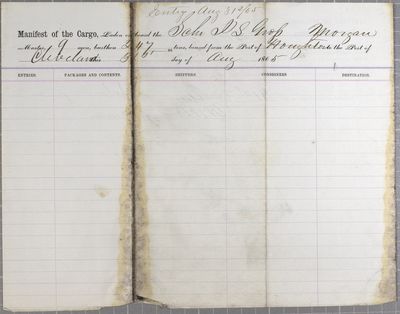 Aug 31st/65
Manifest of the Cargo, Laden on board the Morgan
Master, 9 guns, burthen 247 tons, bound from the Port of Houghton to the Port of
Cleveland this day of Aug 1865
ENTRIES. PACKAGES AND CONTENTS. SHIPPERS. CONSIGNEES. DESTINATION.